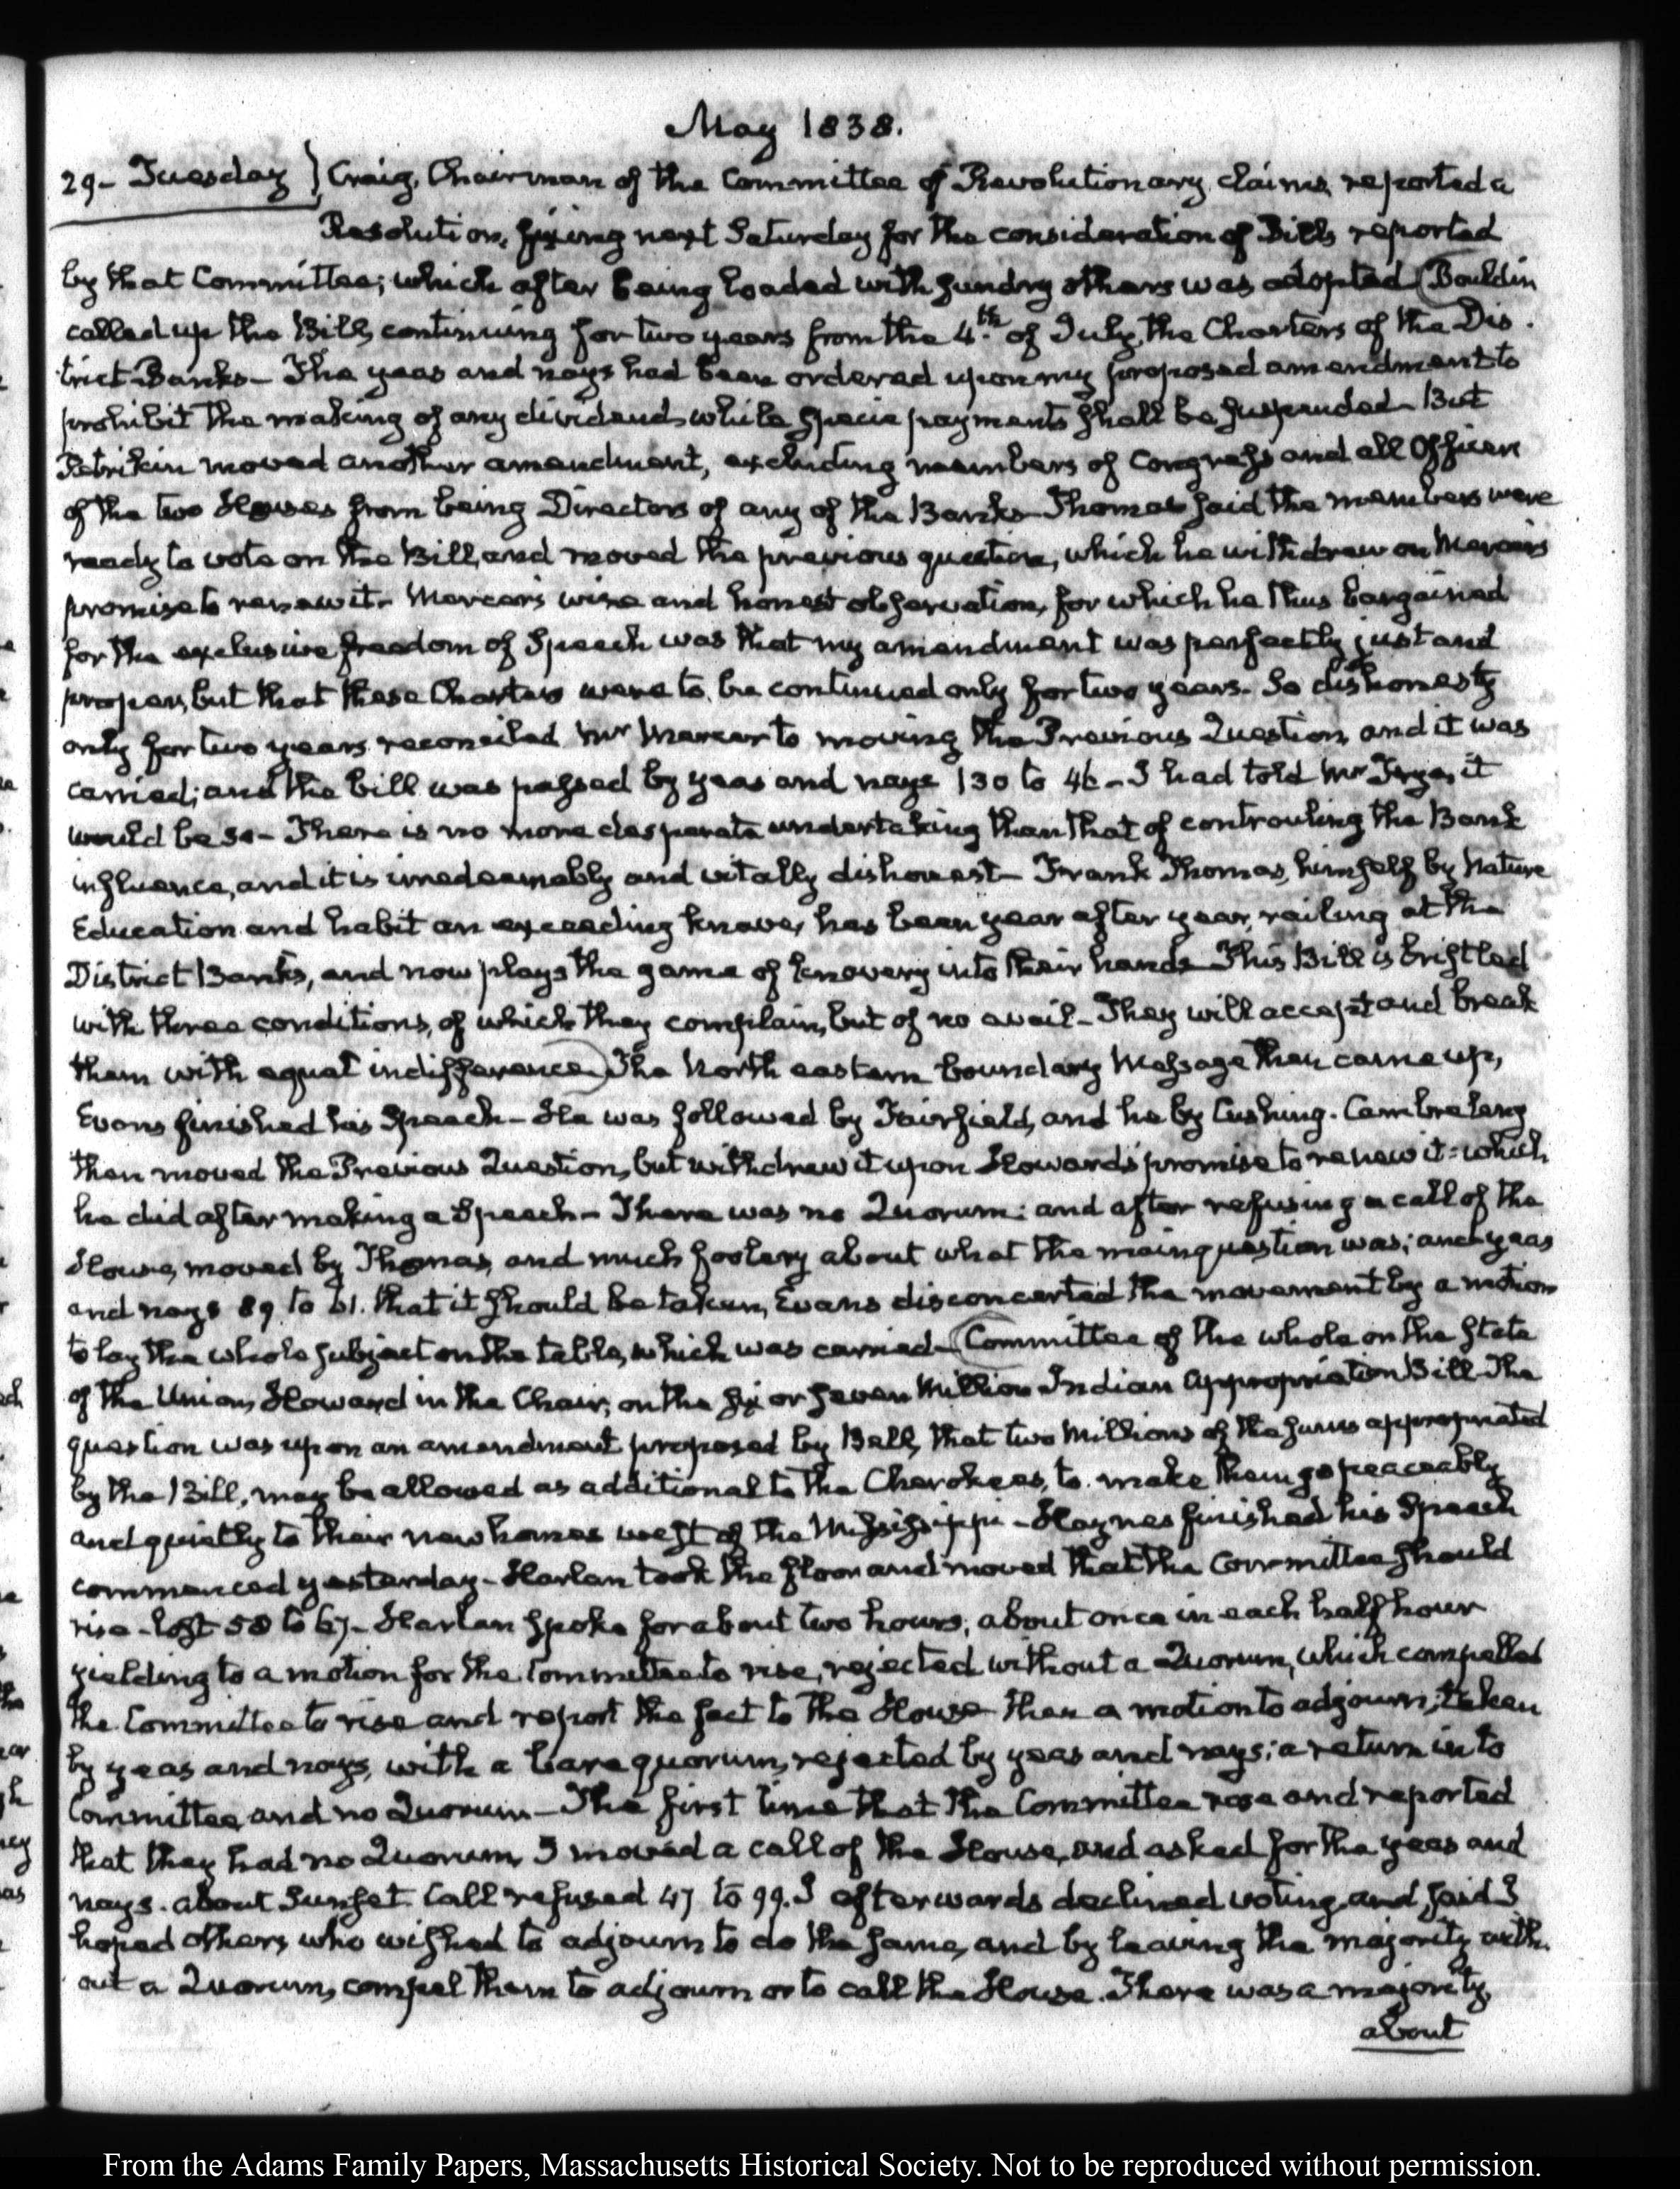 May 1838.
29- Tuesday } Craig, Chairman of the Committee of Revolutionary claims, reported a
Resolution, fixing next Saturday for the consideration of Bills reported
by that Committee; which after being loaded with sundry others was adopted (Bouldin
called up the Bill, continuing for two years from the 4th. of July, the Charters of the Dis.
trict Banks- The yeas and nays had been ordered upon my proposed amendment to
prohibit the making of any dividends while specie payments shall be suspended- But
Petrikin moved another amendment, excluding members of Congress and all Officers
of the two Houses from being Directors of any of the Banks- Thomas said the members were
ready to vote on the Bill, and moved the previous question, which he withdrew on Mercer's
promise to renew it- Mercer's wise and honest observation, for which he thus bargained
for the exclusive freedom of Speech was that my amendment was perfectly just and
proper, but that these Charters were to be continued only for two years- So dishonesty
only for two years reconciled Mr Mercer to moving the Previous Question, and it was
carried; and the bill was passed by yeas and nays 130 to 46- I had told Mr Frye, it
would be so- There is no more desperate undertaking than that of controuling the Bank
influence, and it is irredeemably and vitally dishonest- Frank Thomas, himself by Nature
Education and habit an exceeding knave, has been year after year, railing at the
District Banks, and now plays the game of knavery into their hands- This Bill is bristled
with three conditions, of which they complain, but of no avail- They will accept and break
them with equal indifference) The North eastern boundary Message then came up,
Evans finished his Speech- He was followed by Fairfield, and he by Cushing. Cambreleng
then moved the Previous Question, but withdrew it upon Howard's promise to renew it: which
he did after making a Speech- There was no Quorum: and after refusing a call of the
House, moved by Thomas, and much foolery about what the main question was; and yeas
and nays 89 to 61. that it should be taken, Evans disconcerted the movement by a motion
to lay the whole subject on the table, which was carried- (Committee of the whole on the state
of the Union, Howard in the Chair, on the six or seven Million Indian appropriation Bill- The
question was upon an amendment proposed by Bell, that two Millions of the sums appropriated
by the Bill, may be allowed as additional to the Cherokees, to make them go peaceably
and quietly to their new homes west of the Mississippi- Haynes finished his Speech
commenced yesterday- Harlan took the floor and moved that the Committee should
rise- lost 58 to 67- Harlan spoke for about two hours; about once in each half hour
yielding to a motion for the Committee to rise, rejected without a Quorum, which compelled
the Committee to rise and report the fact to the House- then a motion to adjourn, taken
by yeas and nays, with a bare quorum, rejected by yeas and nays; a return into
Committee, and no Quorum- The first time that the Committee rose and reported
that they had no Quorum, I moved a call of the House, and asked for the yeas and
nays. about Sunset. Call refused 47 to 99. I afterwards declined voting, and said I
hoped others, who wished to adjourn to do the same, and by leaving the majority with.
out a Quorum, compel them to adjourn or to call the House. There was a majority
about
From the Adams Family Papers, Massachusetts Historical Society. Not to be reproduced without permission.